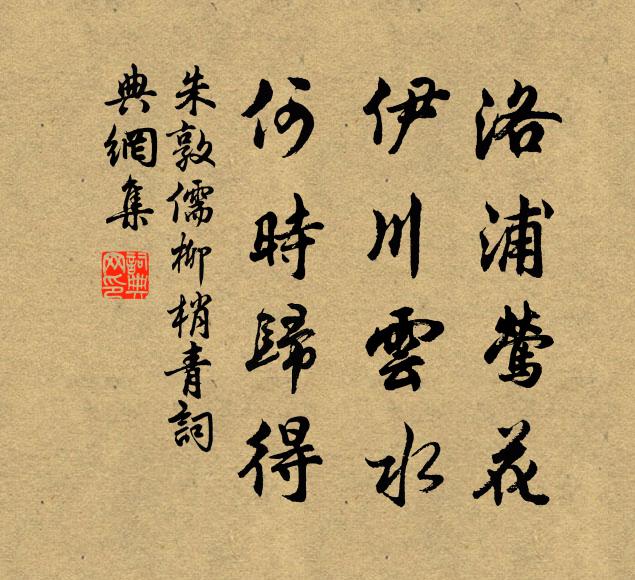 洛浦鶯花
伊川雲水
何時歸得
朱敦儒柳梢青詞
典網集
詞典網印